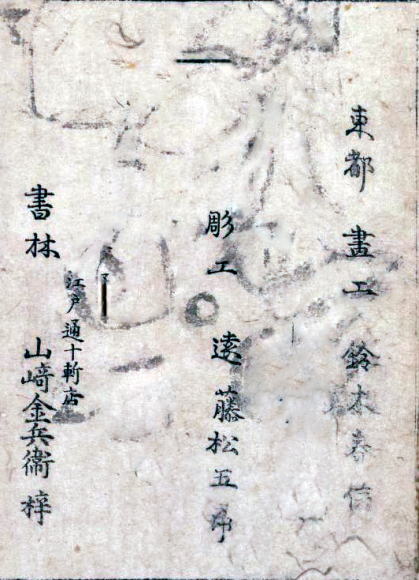 東都 畫工 鈴木春信
彫工 遠藤松五郎
江戸通十軒店
書林 山﨑金兵衞梓